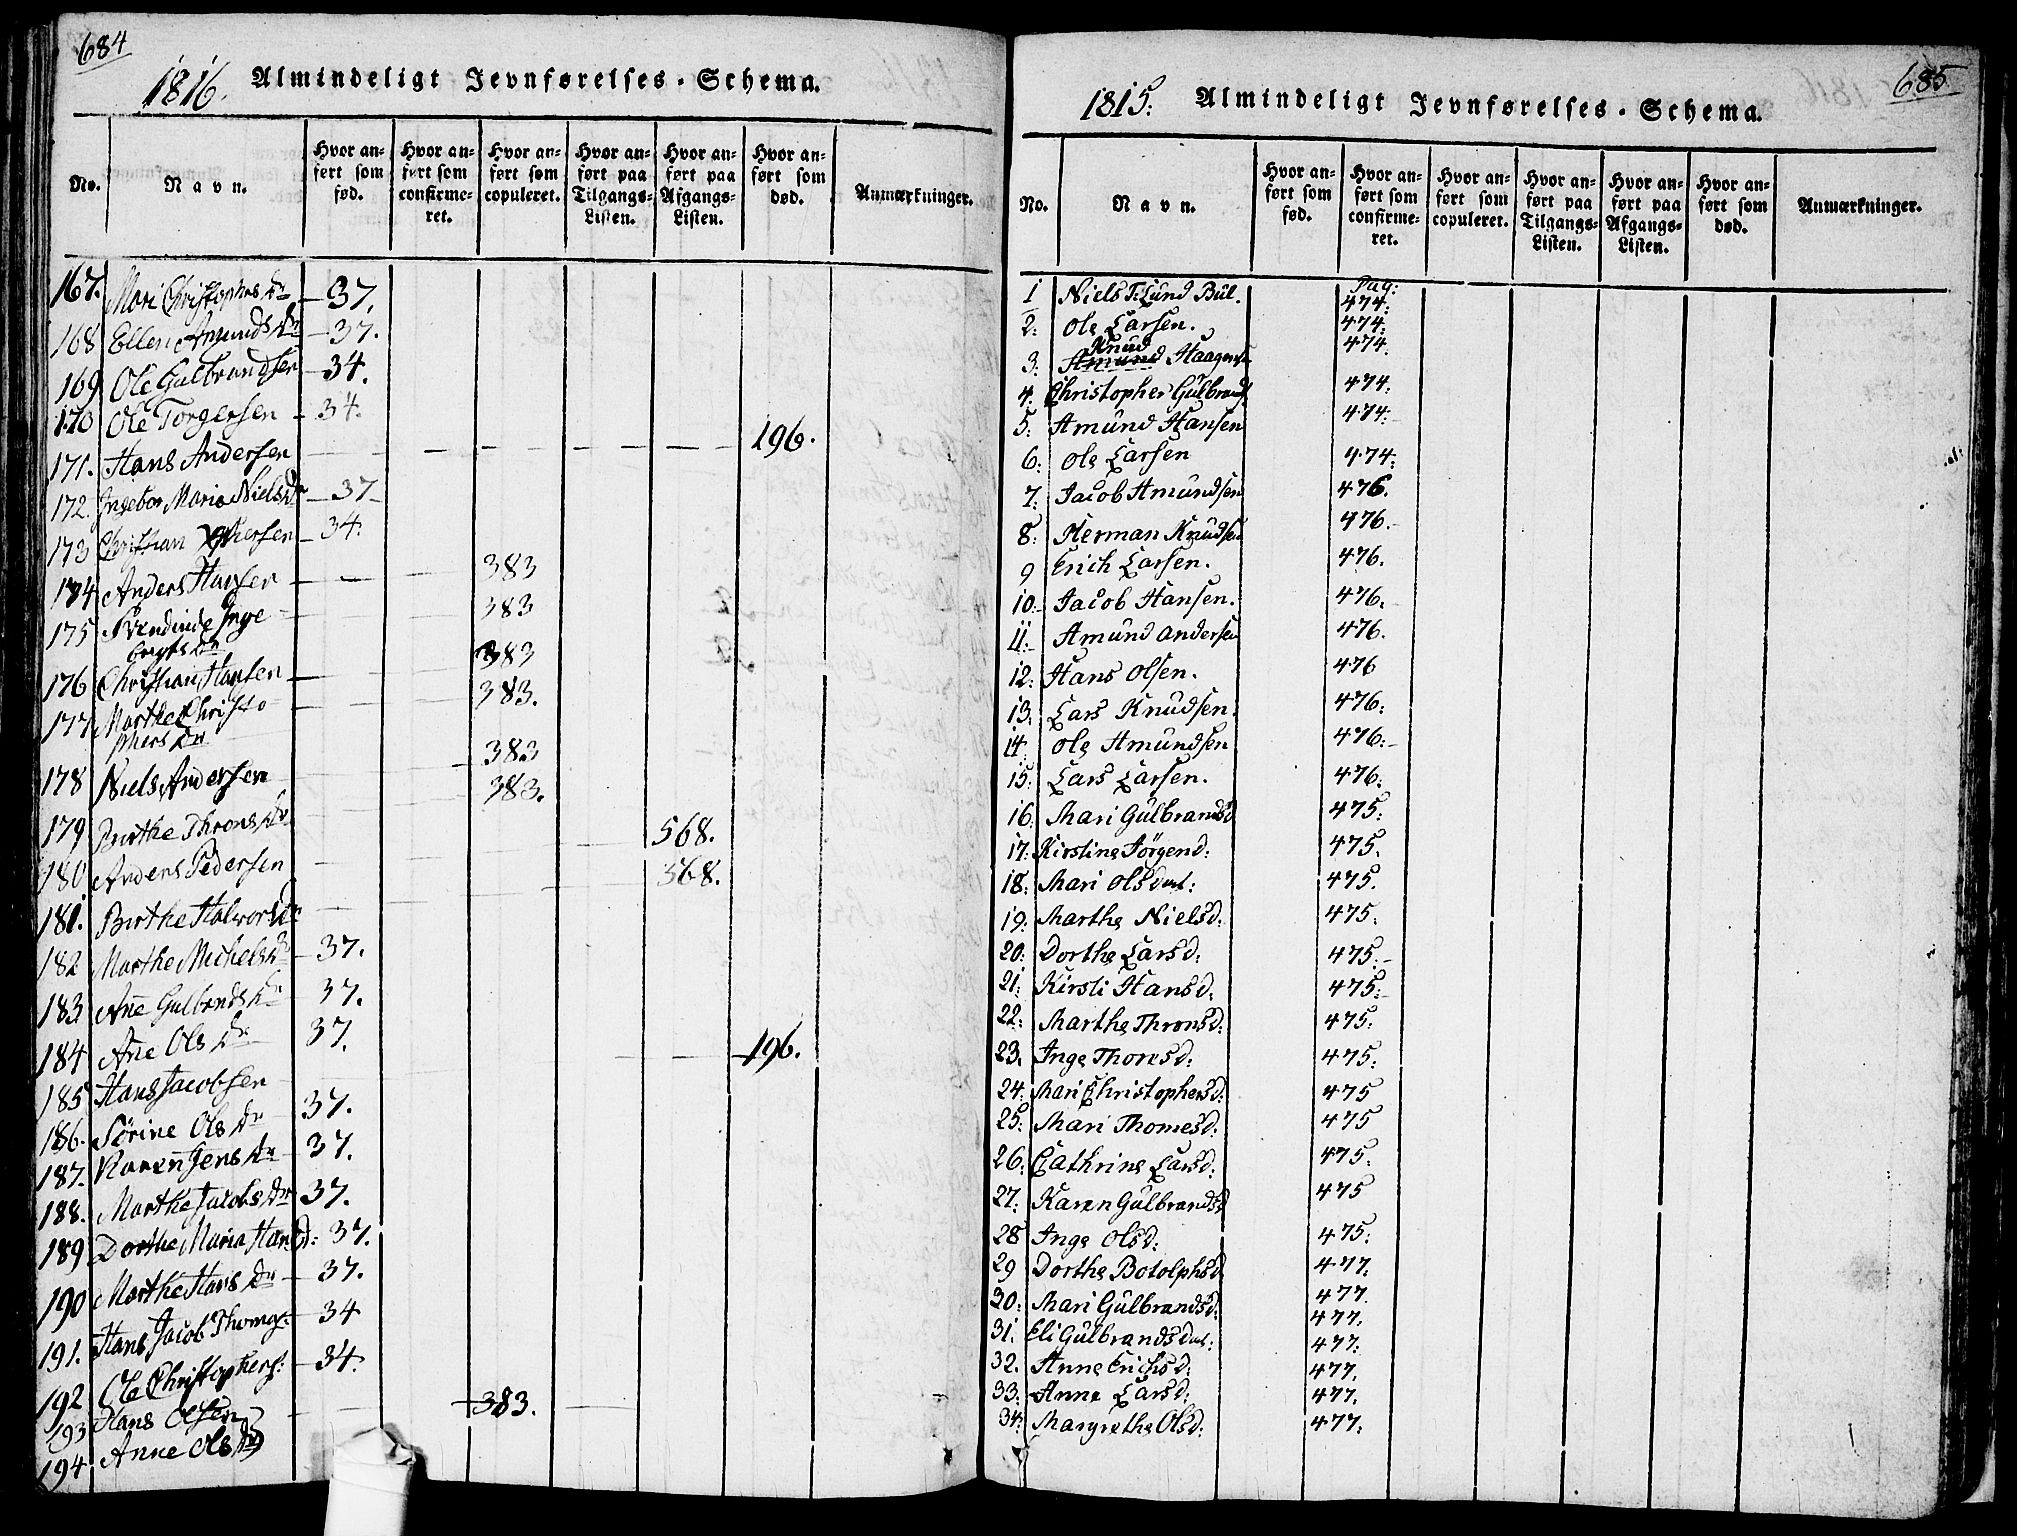 684
1816. Almindeligt Jevnførelses-Schema.
No. Navn. Hvor anført som fød. Hvor anført som confirmeret. Hvor anført som copuleret. Hvor anført paa Tilgangs-Listen. Hvor anført paa Afgangs-Listen. Hvor anført som død. Anmærkninger.
167. Mari Christophersdr – 37.
168 Ellen Amundsdr – 37.
169 Ole Gulbrandsen – 34.
170 Ole Torgersen – 34.
171. Hans Andersen — — — — — 196.
172. Ingebor Maria Nielsdr – 37 –
173 Christian – 34.
174 Anders Hansen – — — 383
175 Inge- 383
bregts dr
176 Christian Hansen — 383
177 Marthe Christo- 383.
phers dr
178 Niels Andersen 383
179 Birthe Throns dr 383.
180 Anders Pedersen 568.
181. Birthe Halvorsdr 568.
182 Marthe Michelsdr – 37.
183 Añe Gulbrandsdr – 37.
184 Añe Olsdr. 37.
185 Hans Jacobsen — — 196.
186. Sörine Olsdr 37.
187. Karen Jensdr 37.
188. Marthe Jacobsdr 37.
189 Dorthe Maria Hansd: 37.
190 Marthe Hansdr – 37.
191. Hans Jacob Thomas: – 34
192 Ole Christophers: – 34.
193 Hans Olsen — — 383. —
194 Anne Olsdr
685
1815. Almindeligt Jevnførelses-Schema.
No. Navn. Hvor anført som fød. Hvor anført som confirmeret. Hvor anført som copuleret. Hvor anført paa Tilgangs-Listen. Hvor anført paa Afgangs-Listen. Hvor anført som død. Anmærkninger.
Pag:
1 Niels T: Lund Bul. 474.
2: Ole Larsen. 474.
Knud
3: Amund Haagens 474.
4. Christopher Gulbrands 474.
5: Amund Hansen 474.
6: Ole Larsen 474:
7. Jacob Amundsen 476.
8: Herman Knudsen 476.
9 Erich Larsen. 476.
10: Jacob Hansen. 476.
11: Amund Andersen 476.
12: Hans Olsen. 476
13. Lars Knudsen. 476:
14 Ole Amundsen 476:
15: Lars Larsen. 476:
16: Mari Gulbrandsd 475:
17: Kirstine Jörgend: 475.
18: Mari Olsdat: 475.
19: Marthe Nielsd: 475.
20: Dorthe Larsd: 475.
21: Kirsti Hansd: 475:
22: Marthe Thronsd: 475:
23. Inge Thoresd: 475:
24: Mari Christophersd: 475
25: Mari Thomesd: 475
26: Cathrine Larsd: 475:
27: Karen Gulbrandsd 475
28 Inge Olsd: 475:
29 Dorthe Botolphsd 477.
30: Mari Gulbrandsd: 477.
31: Eli Gulbrandsdat: 477.
32. Anne Erichsd: 477:
33: Anne Larsd: 477.
34: Margrethe Olsd: 477.
477.